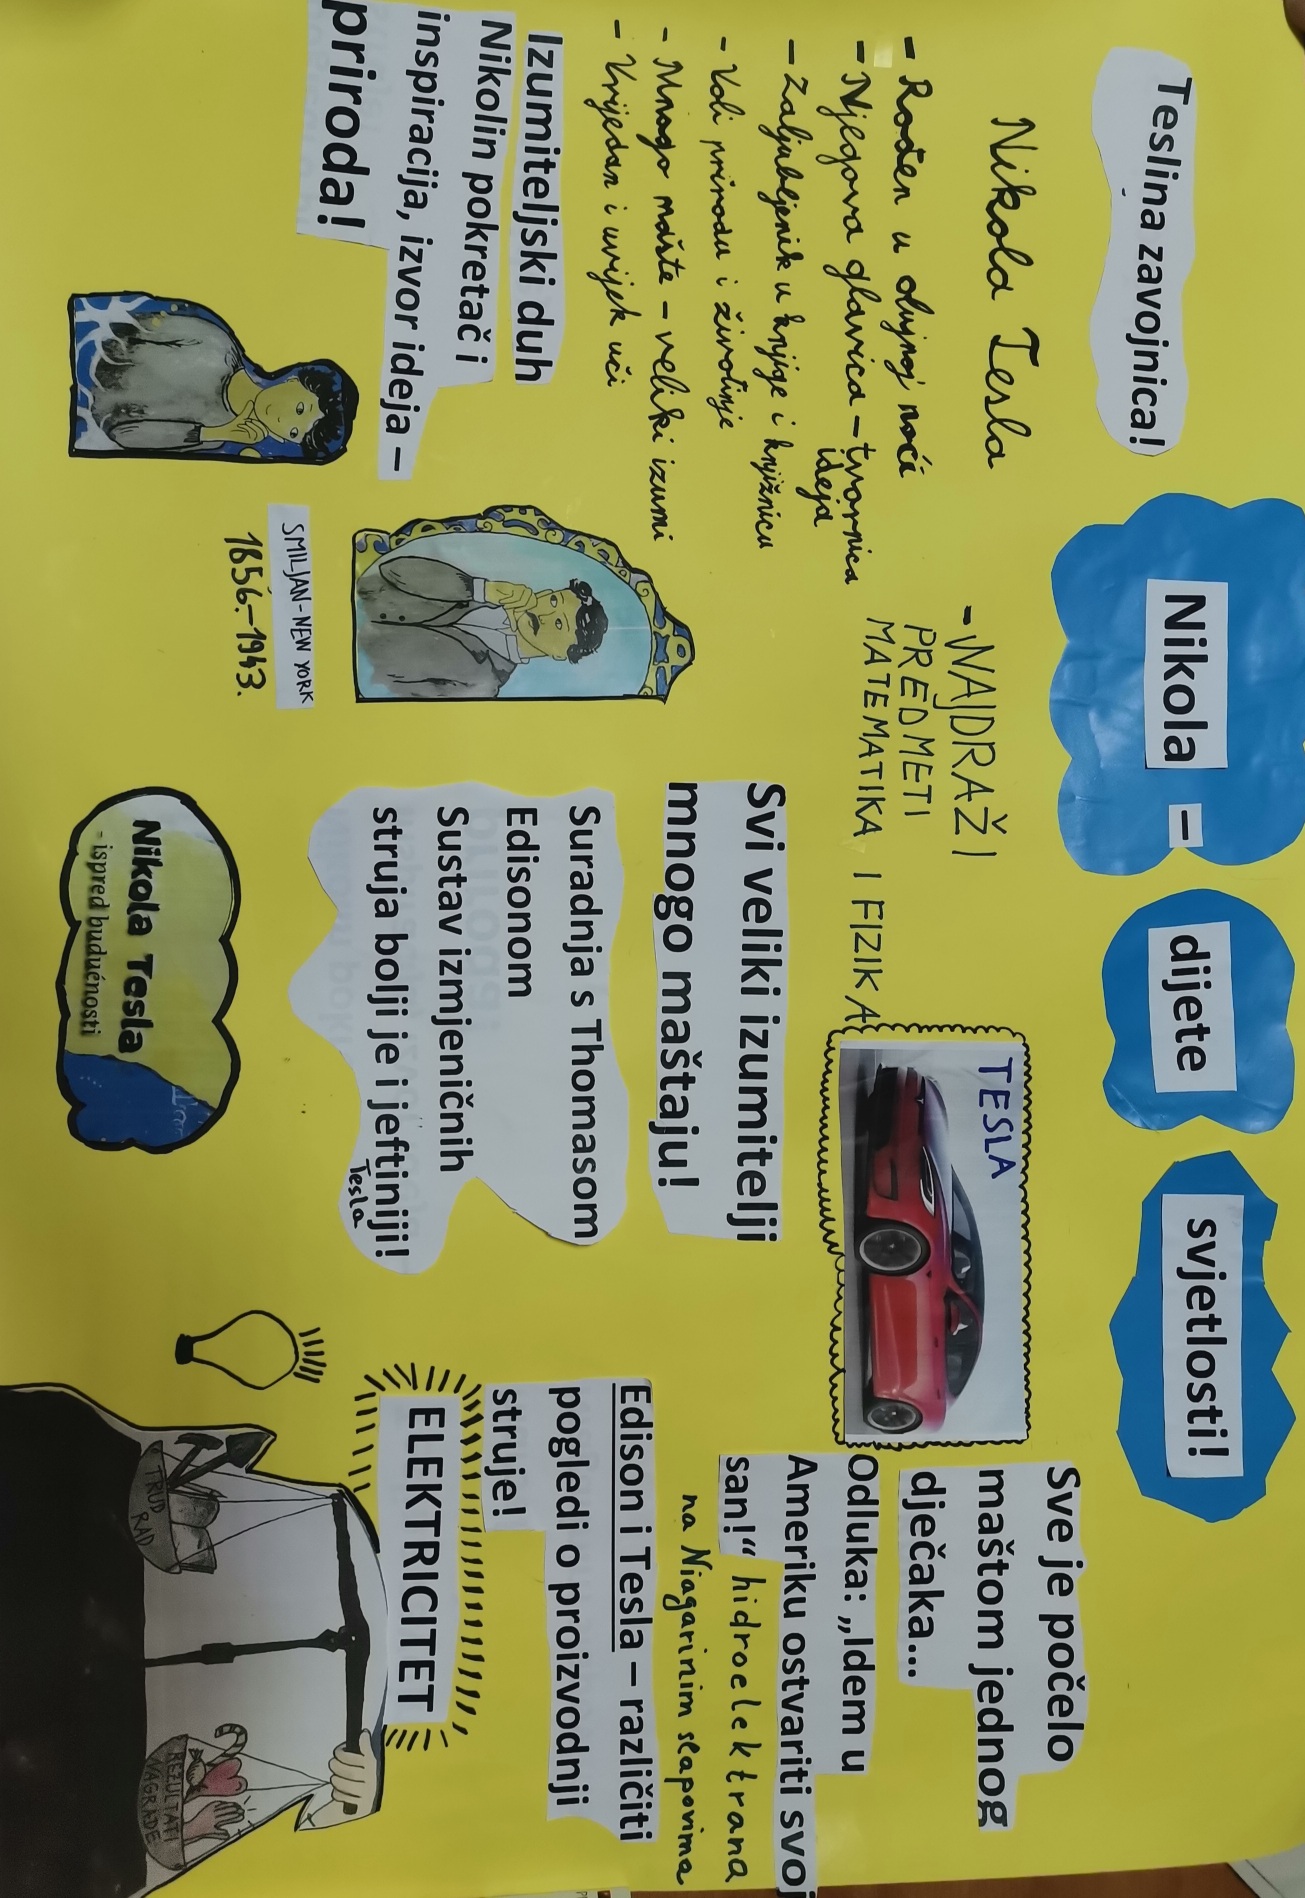 Nikola – dijete svjetlosti!
Teslina zavojnica!
Nikola Tesla
- Rođen u olujnoj noći
- Njegova glavica – tvornica
ideja
- Zaljubljenik u knjige i knjižnicu
- Voli prirodu i životinje
- Mnogo mašte – veliki izumi
- Vrijedan i uvijek uči
Izumiteljski duh
Nikolin pokretač i
inspiracija, izvor ideja –
priroda!
SMILJAN-NEW YORK
1856.-1943.
- NAJDRAŽI
PREDMETI
MATEMATIKA I FIZIKA
TESLA
Svi veliki izumitelji
mnogo maštaju!
Suradnja s Thomasom
Edisonom
Sustav izmjeničnih
struja bolji je i jeftiniji!
Tesla
Nikola Tesla
- ispred budućnosti
Sve je počelo
maštom jednog
dječaka...
Odluka: „Idem u
Ameriku ostvariti svoj
san!“ hidroelektrana
na Niagarinim slapovima
Edison i Tesla – različiti
pogledi o proizvodnji
struje!
ELEKTRICITET
TRUD
RAD
REZULTATI
NAGRADE